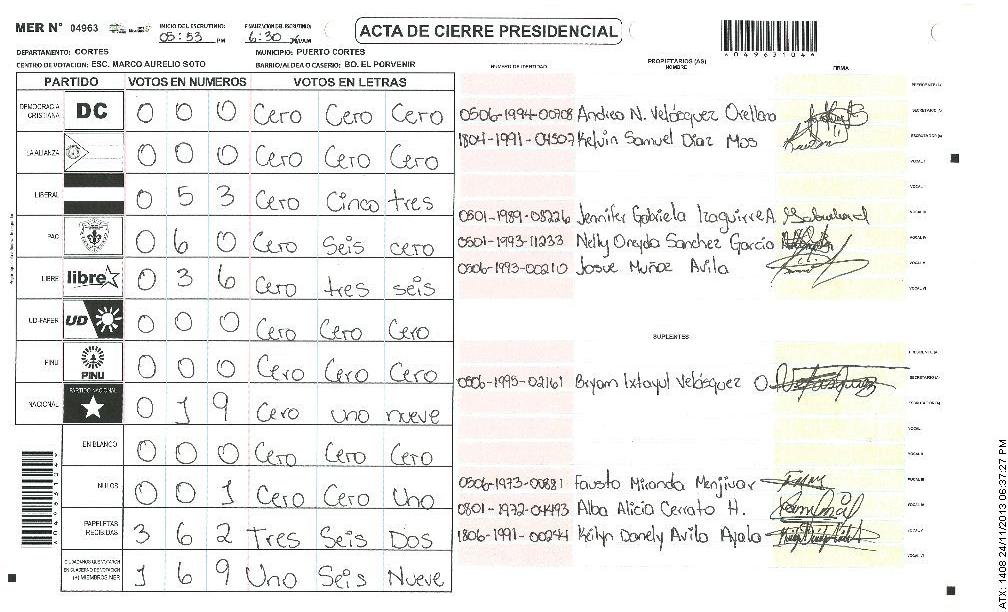 MER N° 04963
INICIO DEL ESCRUTINIO: 05:53 PM
FINALIZACION DEL ESCRUTINIO: 6:30
ACTA DE CIERRE PRESIDENCIAL
A049631046
DEPARTAMENTO: CORTES
MUNICIPIO: PUERTO CORTES
CENTRO DE VOTACION: ESC. MARCO AURELIO SOTO
BARRIO/ALDEA O CASERIO: BO. EL PORVENIR
PARTIDO VOTOS EN NUMEROS VOTOS EN LETRAS
DEMOCRACIA CRISTIANA DC 0 0 0 Cero Cero Cero
LA ALIANZA 0 0 0 Cero Cero Cero
LIBERAL 0 5 3 Cero Cinco tres
PAC 0 6 0 Cero Seis cero
LIBRE libre 0 3 6 Cero tres seis
UD-FAPER UD 0 0 0 Cero Cero Cero
PINU PINU 0 0 0 Cero Cero Cero
NACIONAL PARTIDO NACIONAL 0 1 9 Cero uno nueve
EN BLANCO 0 0 0 Cero Cero Cero
NULOS 0 0 1 Cero Cero Uno
PAPELETAS RECIBIDAS 3 6 2 Tres Seis Dos
CIUDADANOS QUE VOTARON EN CUADERNO DE VOTACION (+) MIEMBROS MER 1 6 9 Uno Seis Nueve
NUMERO DE IDENTIDAD PROPIETARIOS (AS) NOMBRE FIRMA
0506-1994-00908 Andrea N. Velásquez Orellana
1804-1991-04507 Kelvin Samuel Díaz Mos
0501-1989-08226 Jennifer Gabriela Izaguirre A
0501-1993-11233 Nelly Oneyda Sanchez García
0506-1993-00210 Josue Muñoz Avila
SUPLENTES
0506-1995-02161 Bryam Ixtayul Velásquez O.
0506-1973-00881 Fausto Miranda Menjivar
0801-1972-04493 Alba Alicia Cerrato H.
1806-1991-00244 Keilyn Danely Avila Ayala
ATX: 1408 24/11/2013 06:37:27 PM